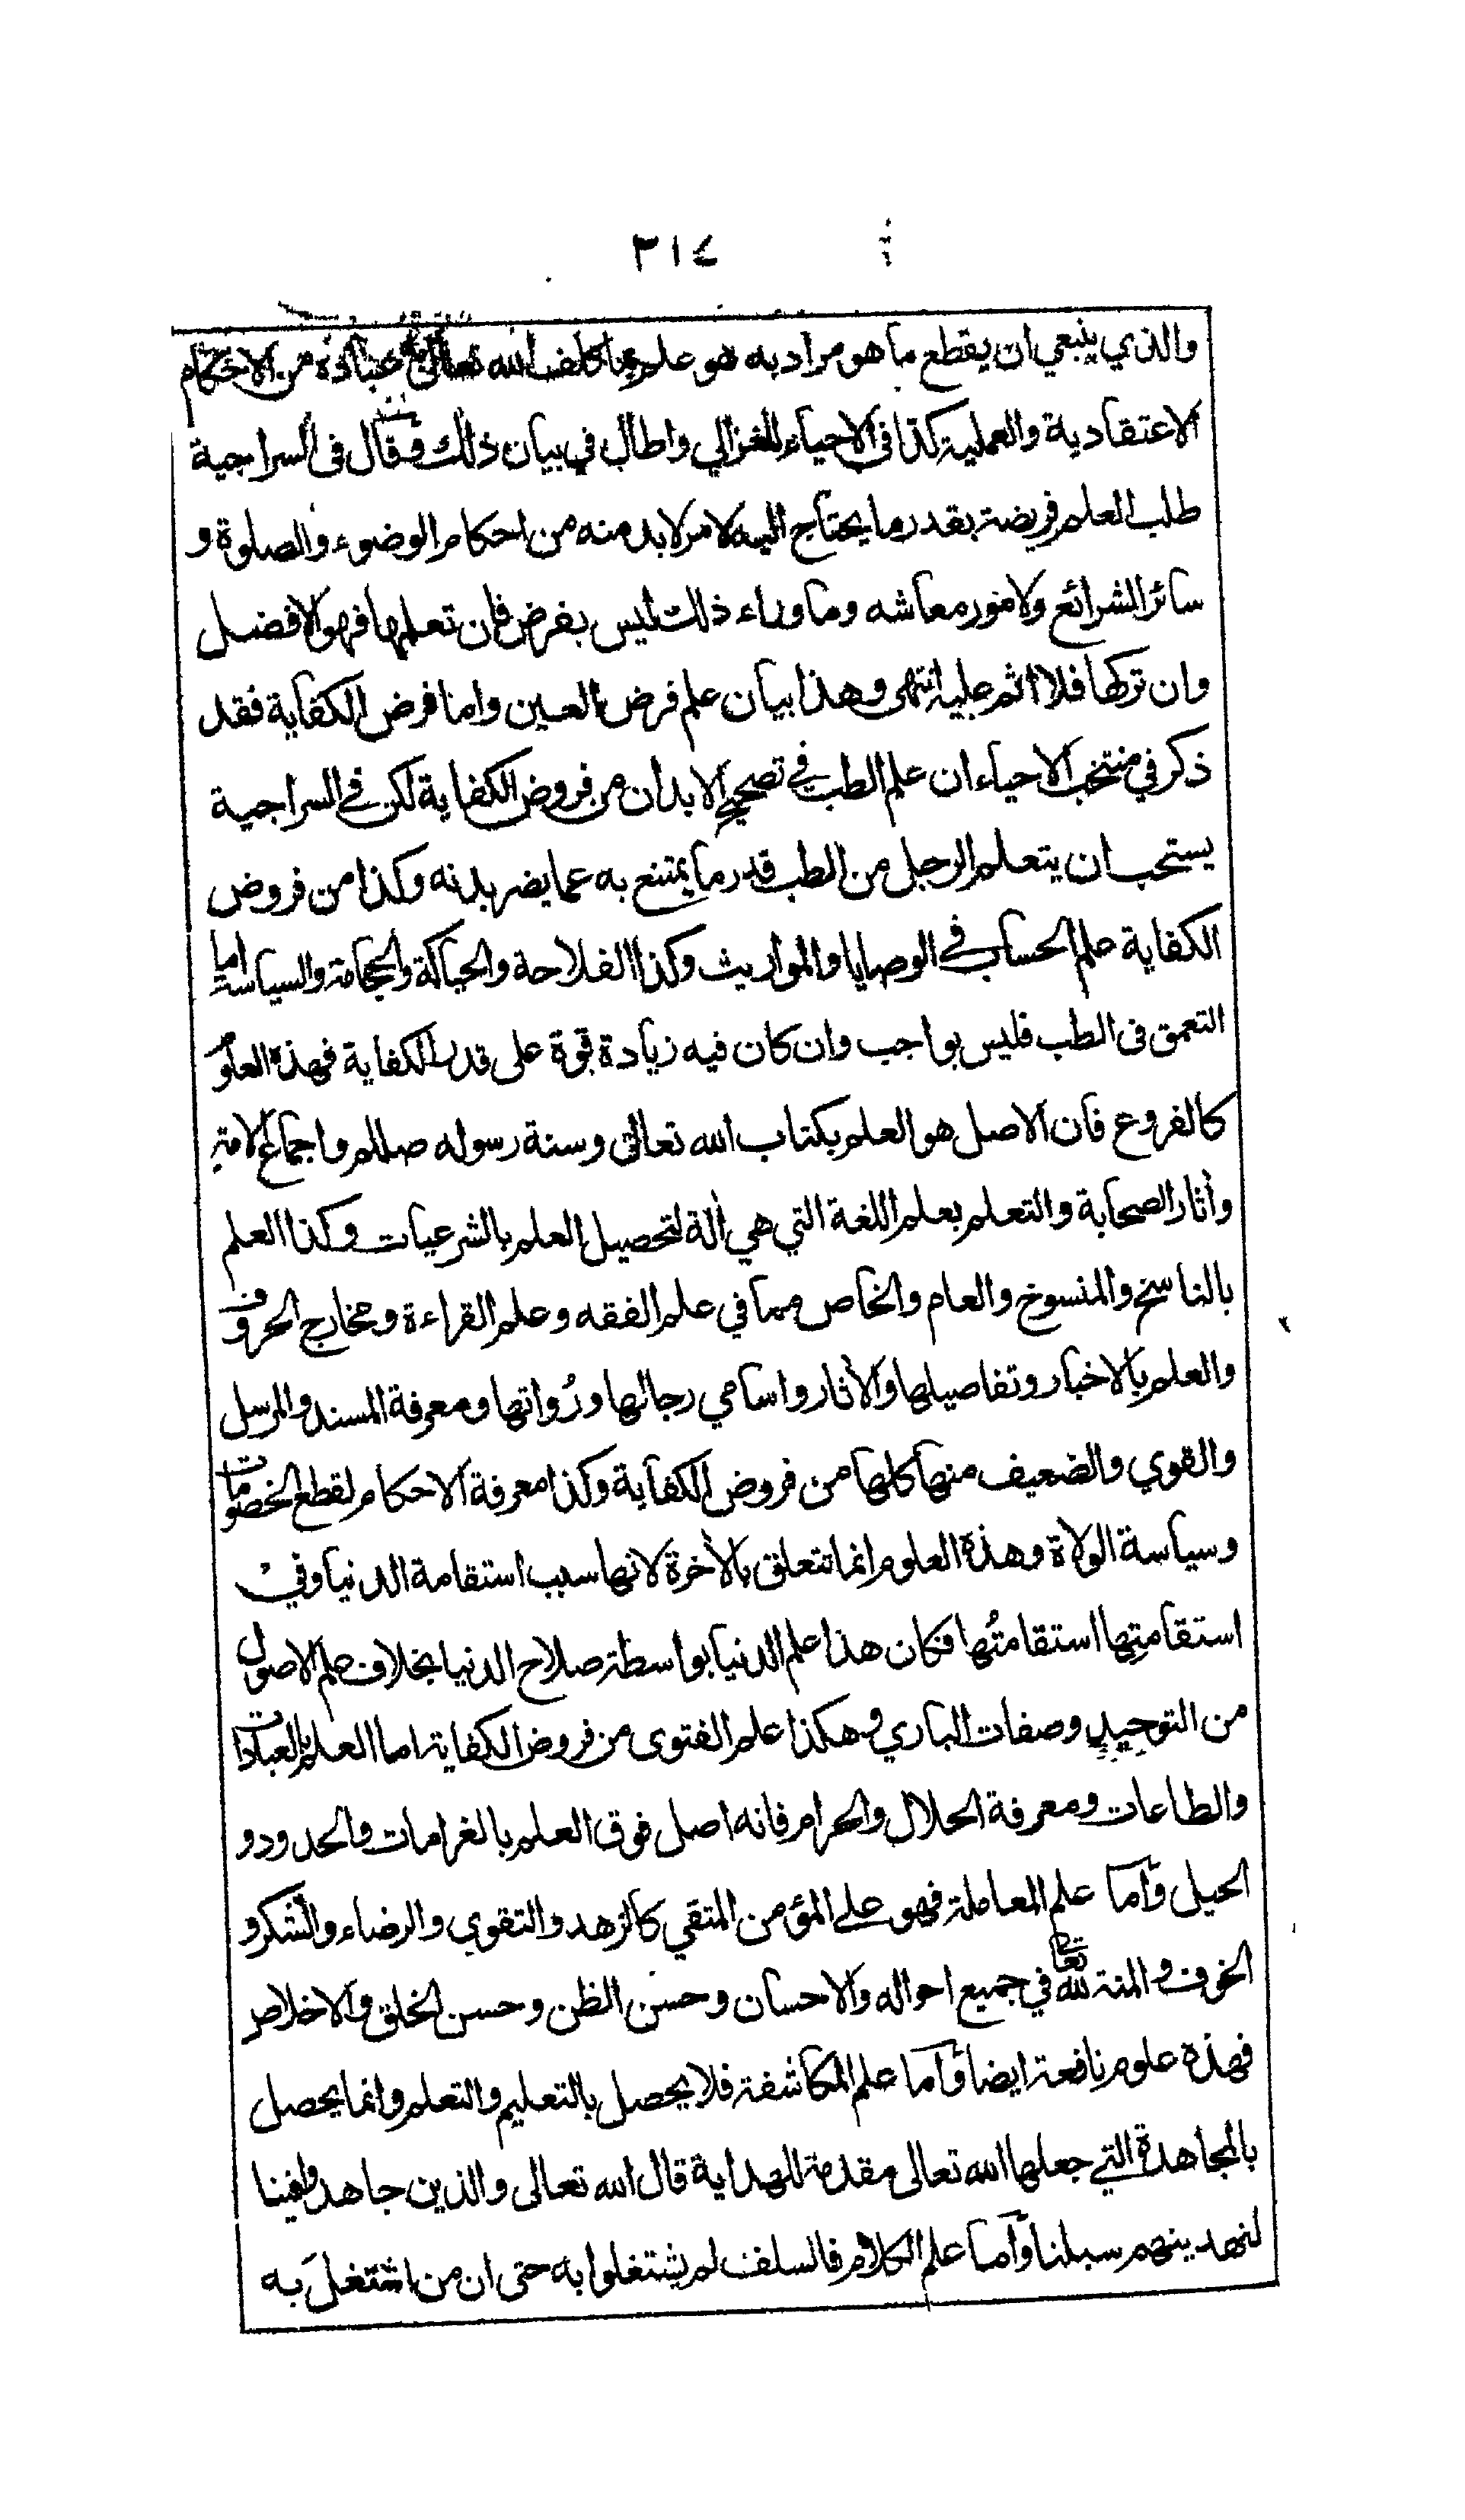 ٣١٤
والذي ينبغي ان يقطع ما هو مراد به هو علم بما كلف الله تعالى عباده من الاحكام
الاعتقادية والعملية كذا فى الاحياء للغزالي واطال في بيان ذلك وقال فى السراجية
طلب العلم فريضة بقدر ما يحتاج اليه لامر لا بد منه من احكام الوضوء والصلوة و
سائر الشرائع ولامور معاشه وما وراء ذلك ليس بفرض فان تعلمها فهو الافضل
وان تركها فلا اثم عليه انتهى وهذا بيان علم فرض العين واما فرض الكفاية فقد
ذكر في منتخب الاحياء ان علم الطب في تصحيح الابدان من فروض الكفاية لكن في السراجية
يستحب ان يتعلم الرجل من الطب قدر ما يمتنع به عما يضر بدنه وكذا من فروض
الكفاية علم الحساب في الوصايا والمواريث وكذا الفلاحة والحياكة والحجامة والسياسة اما
التعمق فى الطب فليس بواجب وان كان فيه زيادة قوة على قدر الكفاية فهذه العلوم
كالفروع فان الاصل هو العلم بكتاب الله تعالى وسنة رسوله صللم واجماع الامة
وأثار الصحابة والتعلم بعلم اللغة التي هي ألة لتحصيل العلم بالشرعيات وكذا العلم
بالناسخ والمنسوخ والعام والخاص مما في علم الفقه وعلم القراءة ومخارج الحروف
والعلم بالاخبار وتفاصيلها والأثار واسامي رجالها ورُواتها ومعرفة المسند والمرسل
والقوي والضعيف منها كلها من فروض الكفاية وكذا معرفة الاحكام لقطع الخصومات
وسياسة الولاة وهذه العلوم انما تتعلق بالأخرة لانها سبب استقامة الدنيا وفي
استقامتِها استقامتُها فكان هذا علم الدنيا بواسطة صلاح الدنيا بخلاف علم الاصول
من التوحيدِ وصفات الباري وهكذا علم الفتوى من فروض الكفاية اما العلم بالعبادات
والطاعات ومعرفة الحلال والحرام فانه اصل فوق العلم بالغرامات والحدود و
الحيل وأما علم المعاملة فهو على المؤمن المتقي كالزهد والتقوي والرضاء والشكر و
الخوف والمنة لله تعالى في جميع احواله والاحسان وحسن الظن وحسن الخلق والاخلاص
فهذه علوم نافعة ايضا وأما علم المكاشفة فلا يحصل بالتعليم والتعلم وانما يحصل
بالمجاهدة التي جعلها الله تعالى مقدمة للهداية قال الله تعالى والذين جاهدوا فينا
لنهدينهم سبلنا وأما علم الكلام فالسلف لم يشتغلوا به حتى ان من اشتغلَ به